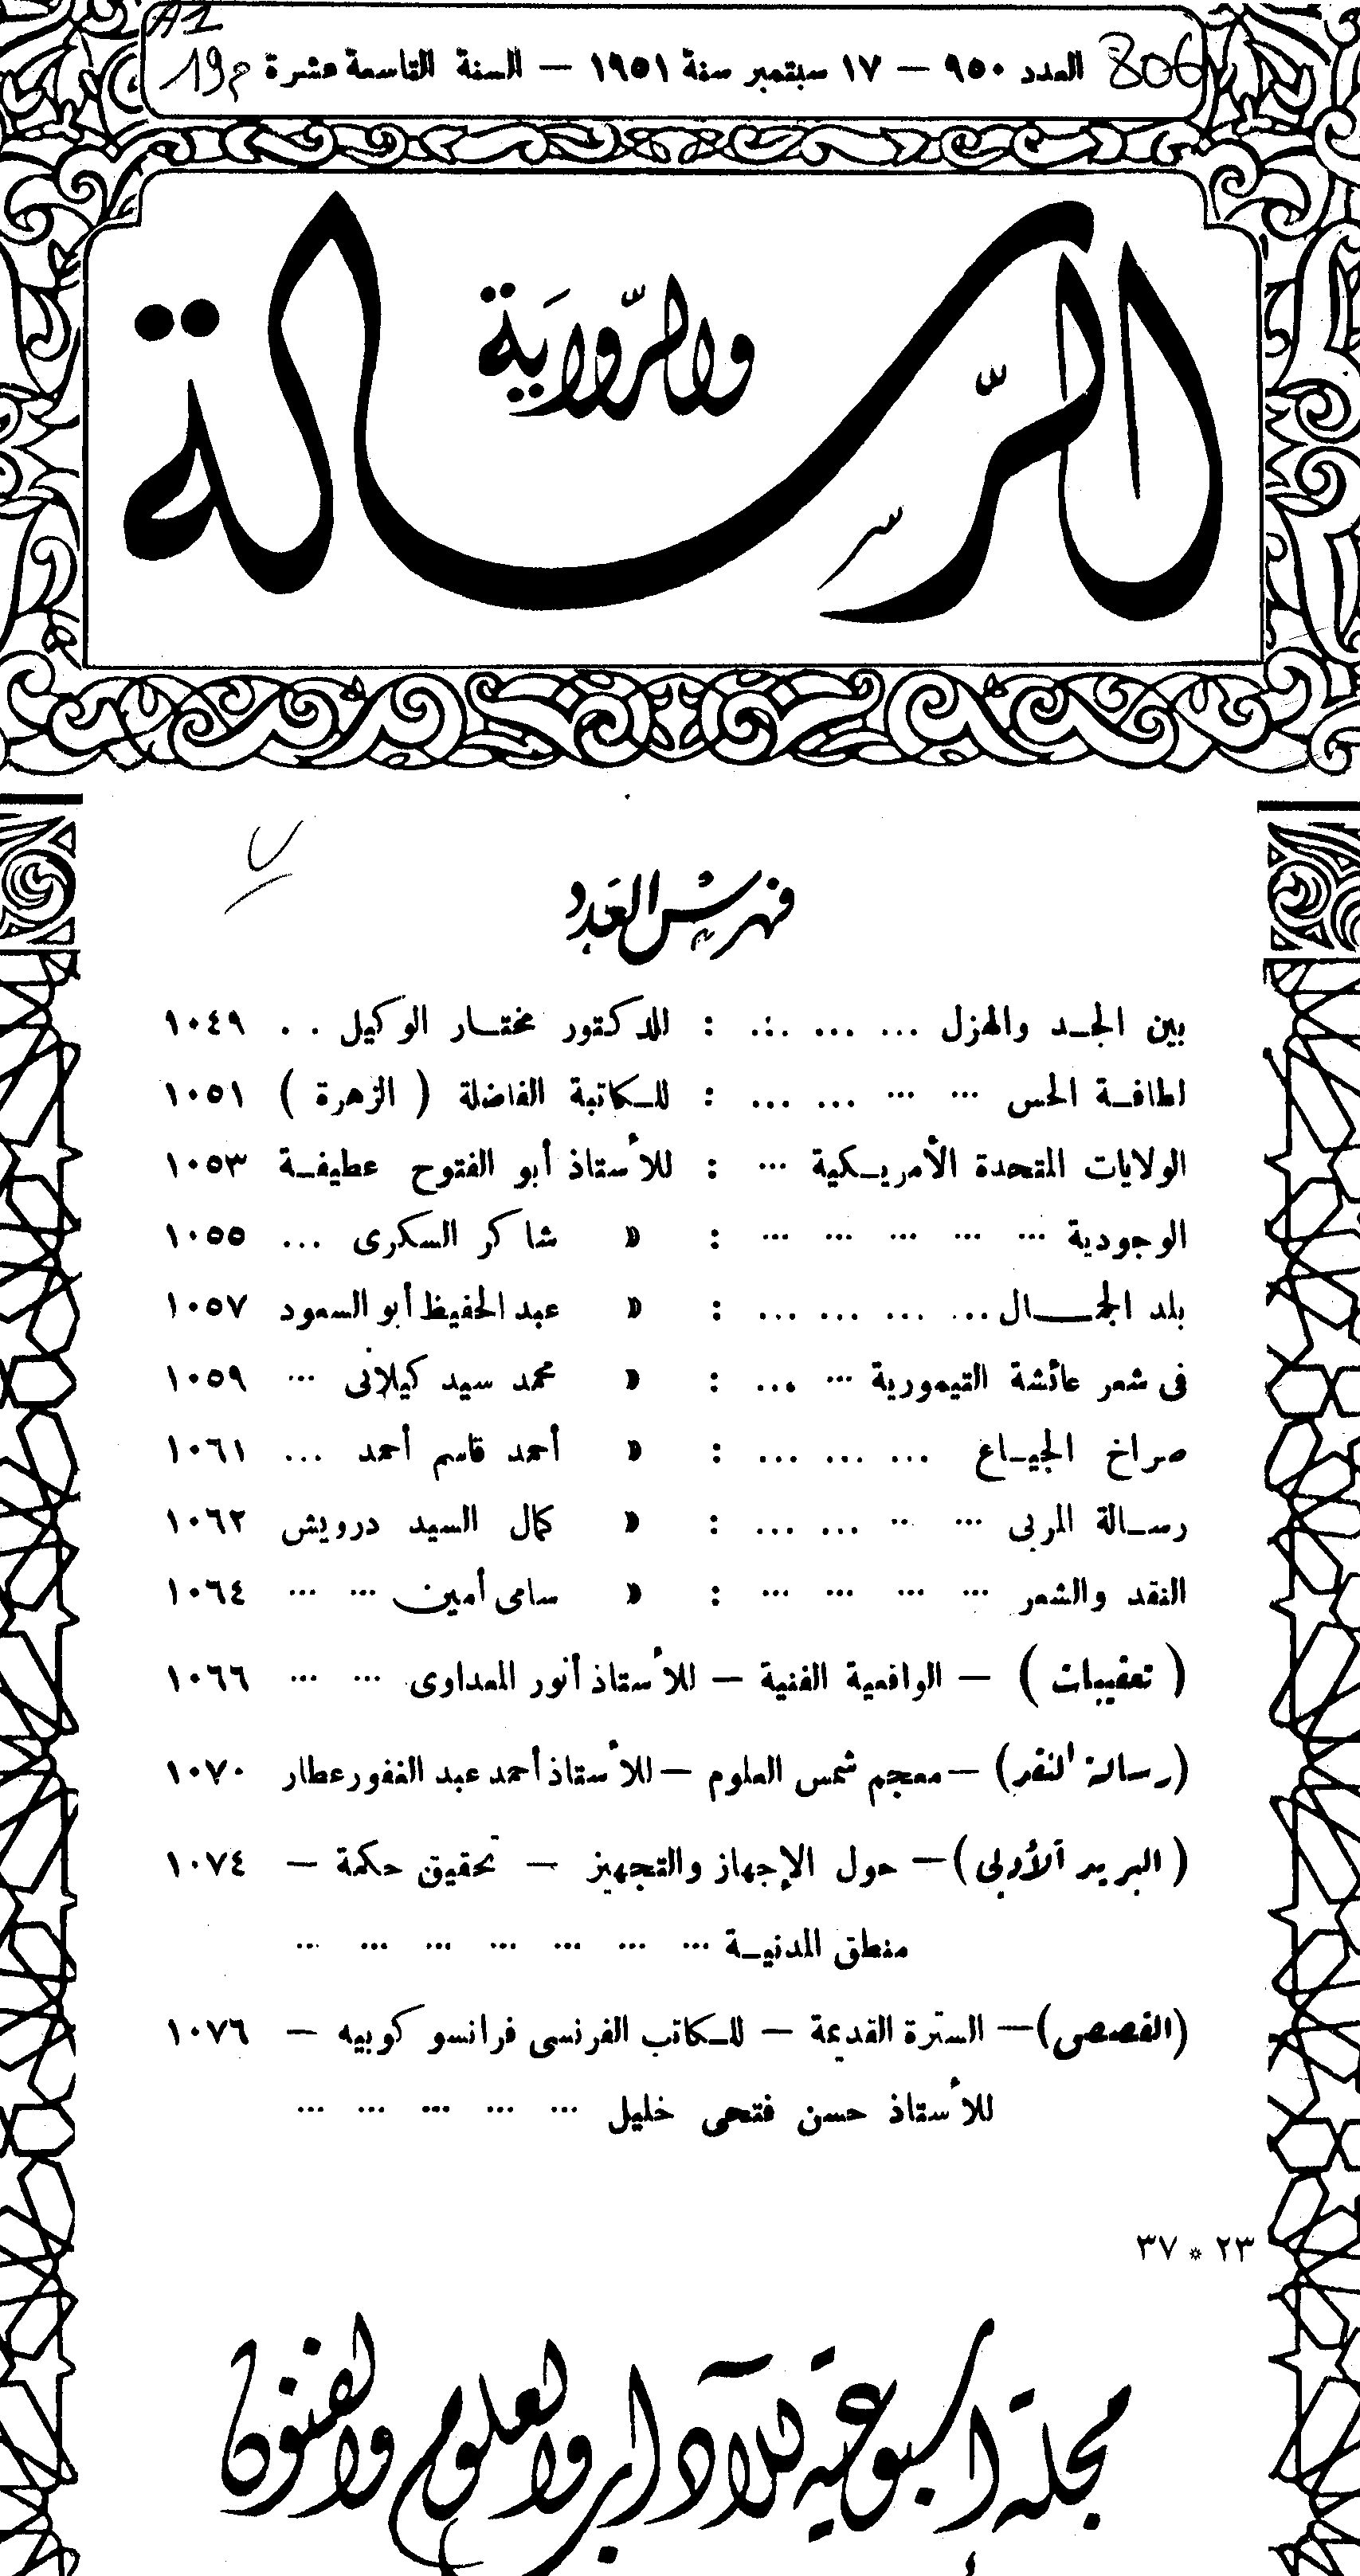 A1
806 العدد ٩٥٠ — ١٧ سبتمبر سنة ١٩٥١ — السنة التاسعة عشرة م19
الرسالة
والرواية
فهرس العدد
بين الجد والهزل ... ... ... : للدكتور مختار الوكيل . . ١٠٤٩
لطافة الحس ... ... ... ... : للكاتبة الفاضلة ( الزهرة ) ١٠٥١
الولايات المتحدة الأمريكية ... : للأستاذ أبو الفتوح عطيفة ١٠٥٣
الوجودية ... ... ... ... ... : » شاكر السكرى ... ١٠٥٥
بلد الجمال ... ... ... ... : » عبد الحفيظ أبو السعود ١٠٥٧
فى شعر عائشة التيمورية ... ... : » محمد سيد كيلانى ... ١٠٥٩
صراخ الجياع ... ... ... : » أحمد قاسم أحمد ... ١٠٦١
رسالة المربى ... .. ... ... : » كمال السيد درويش ١٠٦٢
النقد والشعر ... ... ... ... : » سامى أمين ... ... ١٠٦٤
( تعقيبات ) — الواقعية الفنية — للأستاذ أنور المعداوى ... ... ١٠٦٦
(رسالة النقد) — معجم شمس العلوم — للأستاذ أحمد عبد الغفور عطار ١٠٧٠
( البريد الأدبى ) — حول الإجهاز والتجهيز — تحقيق حكمة — ١٠٧٤
منطق المدنية ... ... ... ... ... ... ...
(القصص) — السترة القديمة — للكاتب الفرنسى فرانسو كوبيه — ١٠٧٦
للأستاذ حسن فتحى خليل ... ... ... ... ...
٢٣ * ٣٧
مجلة أسبوعية للآداب والعلوم والفنون